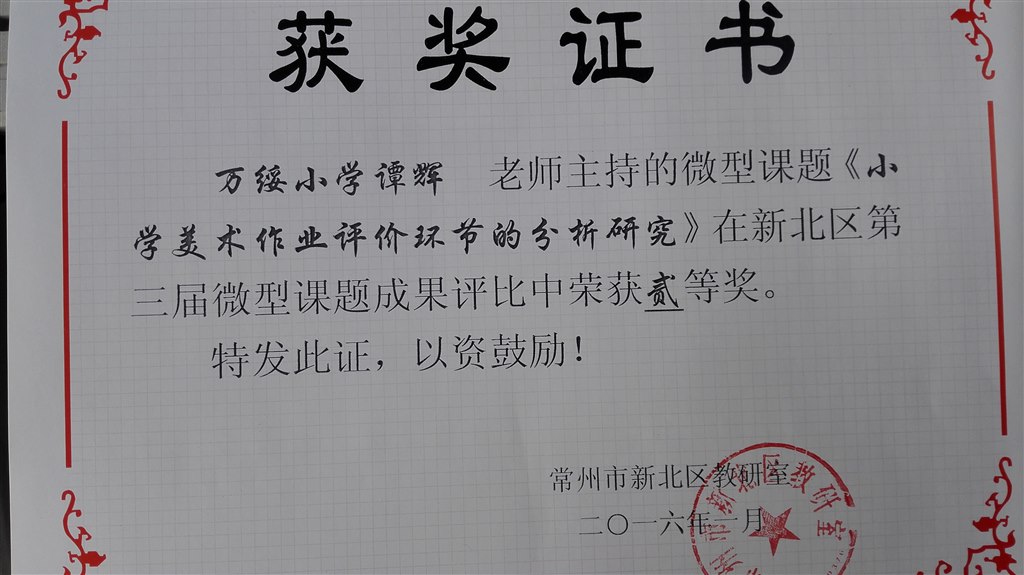 获奖证书
万绥小学谭辉 老师主持的微型课题《小
学美术作业评价环节的分析研究》在新北区第
三届微型课题成果评比中荣获贰等奖。
特发此证，以资鼓励！
常州市新北区教研室
二〇一六年一月
州市新北区教研室